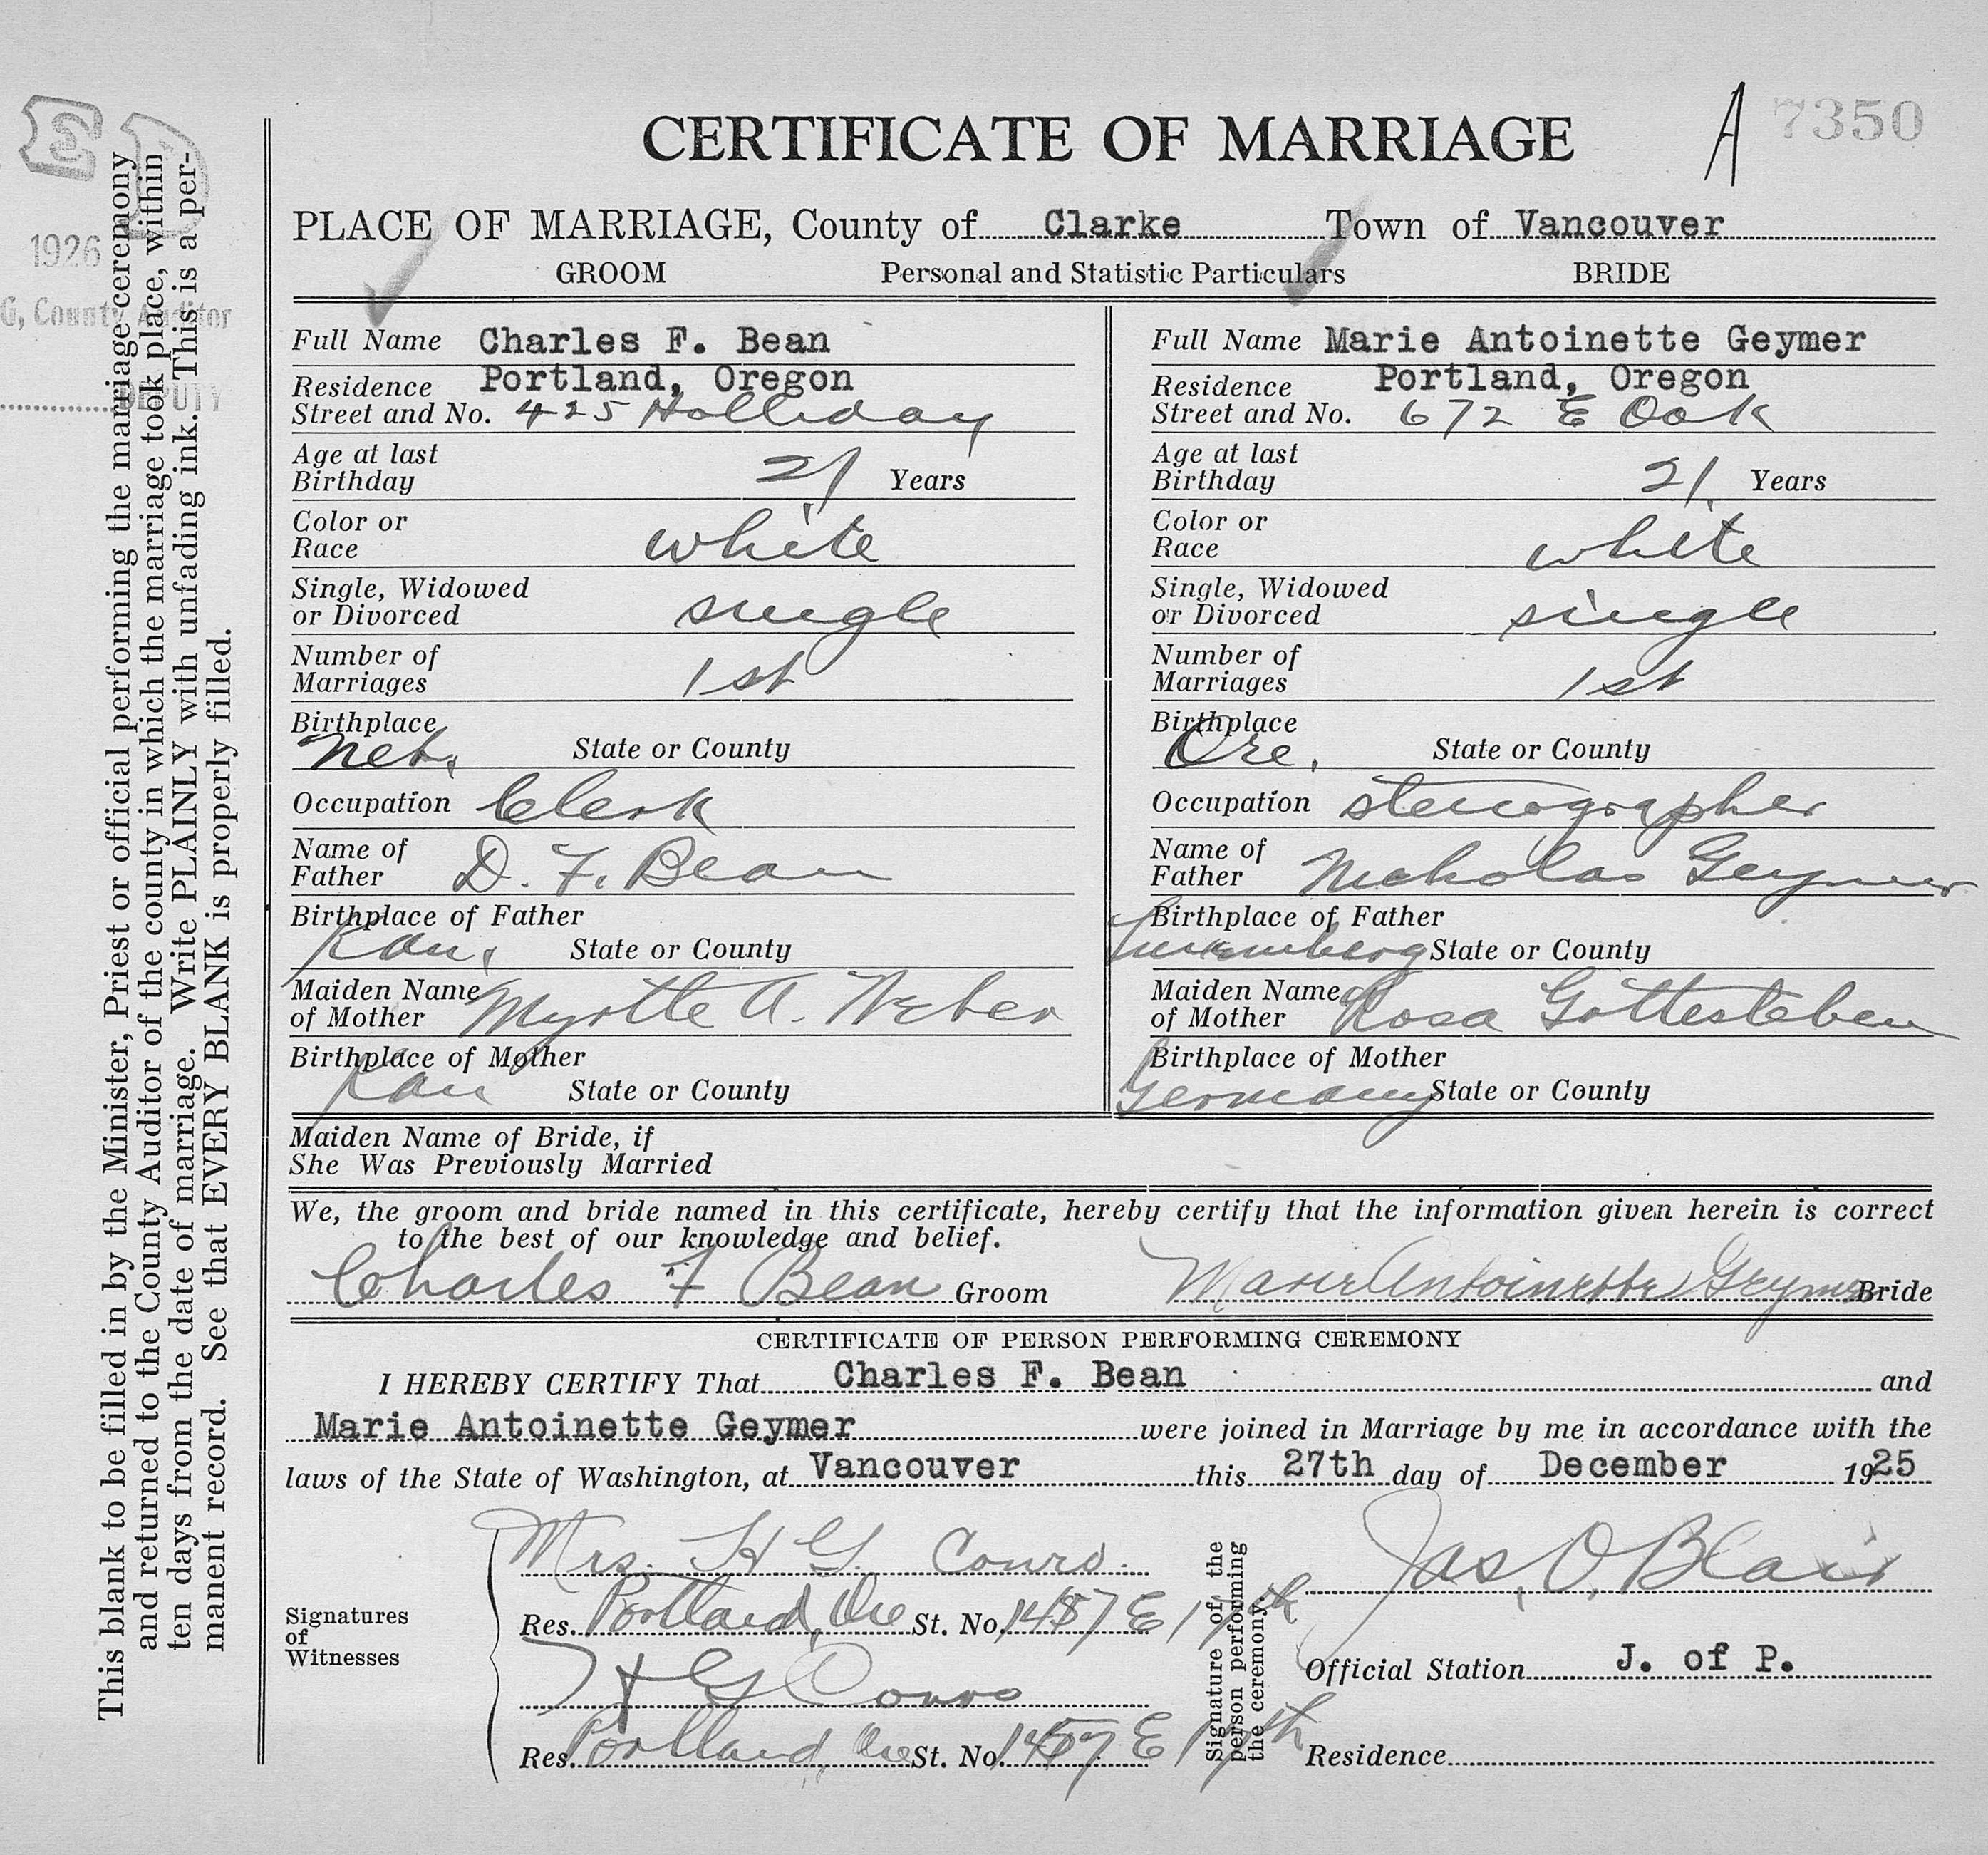 CERTIFICATE OF MARRIAGE
A 7350
PLACE OF MARRIAGE, County of Clarke Town of Vancouver
GROOM Personal and Statistic Particulars BRIDE
Full Name Charles F. Bean
Residence Portland, Oregon
Street and No. 425 Holliday
Age at last
Birthday 21 Years
Color or
Race white
Single, Widowed
or Divorced single
Number of
Marriages 1st
Birthplace
Neb. State or County
Occupation Clerk
Name of
Father D. F. Bean
Birthplace of Father
Kan. State or County
Maiden Name
of Mother Myrtle A. Weber
Birthplace of Mother
Kan State or County
Full Name Marie Antoinette Geymer
Residence Portland, Oregon
Street and No. 672 E Oak
Age at last
Birthday 21 Years
Color or
Race white
Single, Widowed
or Divorced single
Number of
Marriages 1st
Birthplace
Ore. State or County
Occupation stenographer
Name of
Father Nicholas Geymer
Birthplace of Father
State or County
Maiden Name
of Mother Rosa Gottesleben
Birthplace of Mother
Germany State or County
Maiden Name of Bride, if
She Was Previously Married
We, the groom and bride named in this certificate, hereby certify that the information given herein is correct
to the best of our knowledge and belief.
Charles F Bean Groom Marie Antoinette Geymer Bride
CERTIFICATE OF PERSON PERFORMING CEREMONY
I HEREBY CERTIFY That Charles F. Bean and
Marie Antoinette Geymer were joined in Marriage by me in accordance with the
laws of the State of Washington, at Vancouver this 27th day of December 1925
Signatures
of
Witnesses
Mrs. H G. Conro.
Res. Portland, Ore St. No. 1457 E 17th
H G Conro
Res. Portland, Ore St. No. 1457 E 17th
Signature of the
person performing
the ceremony.
Jas. O. Blair
Official Station J. of P.
Residence
This blank to be filled in by the Minister, Priest or official performing the marriage ceremony
and returned to the County Auditor of the county in which the marriage took place, within
ten days from the date of marriage. Write PLAINLY with unfading ink. This is a per-
manent record. See that EVERY BLANK is properly filled.
1926
G, County Auditor
DEPUTY